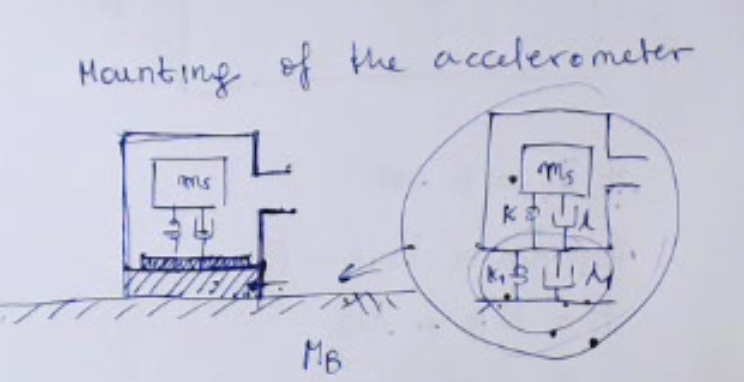 Mounting of the accelerometer
ms
ms
K
K1
MB